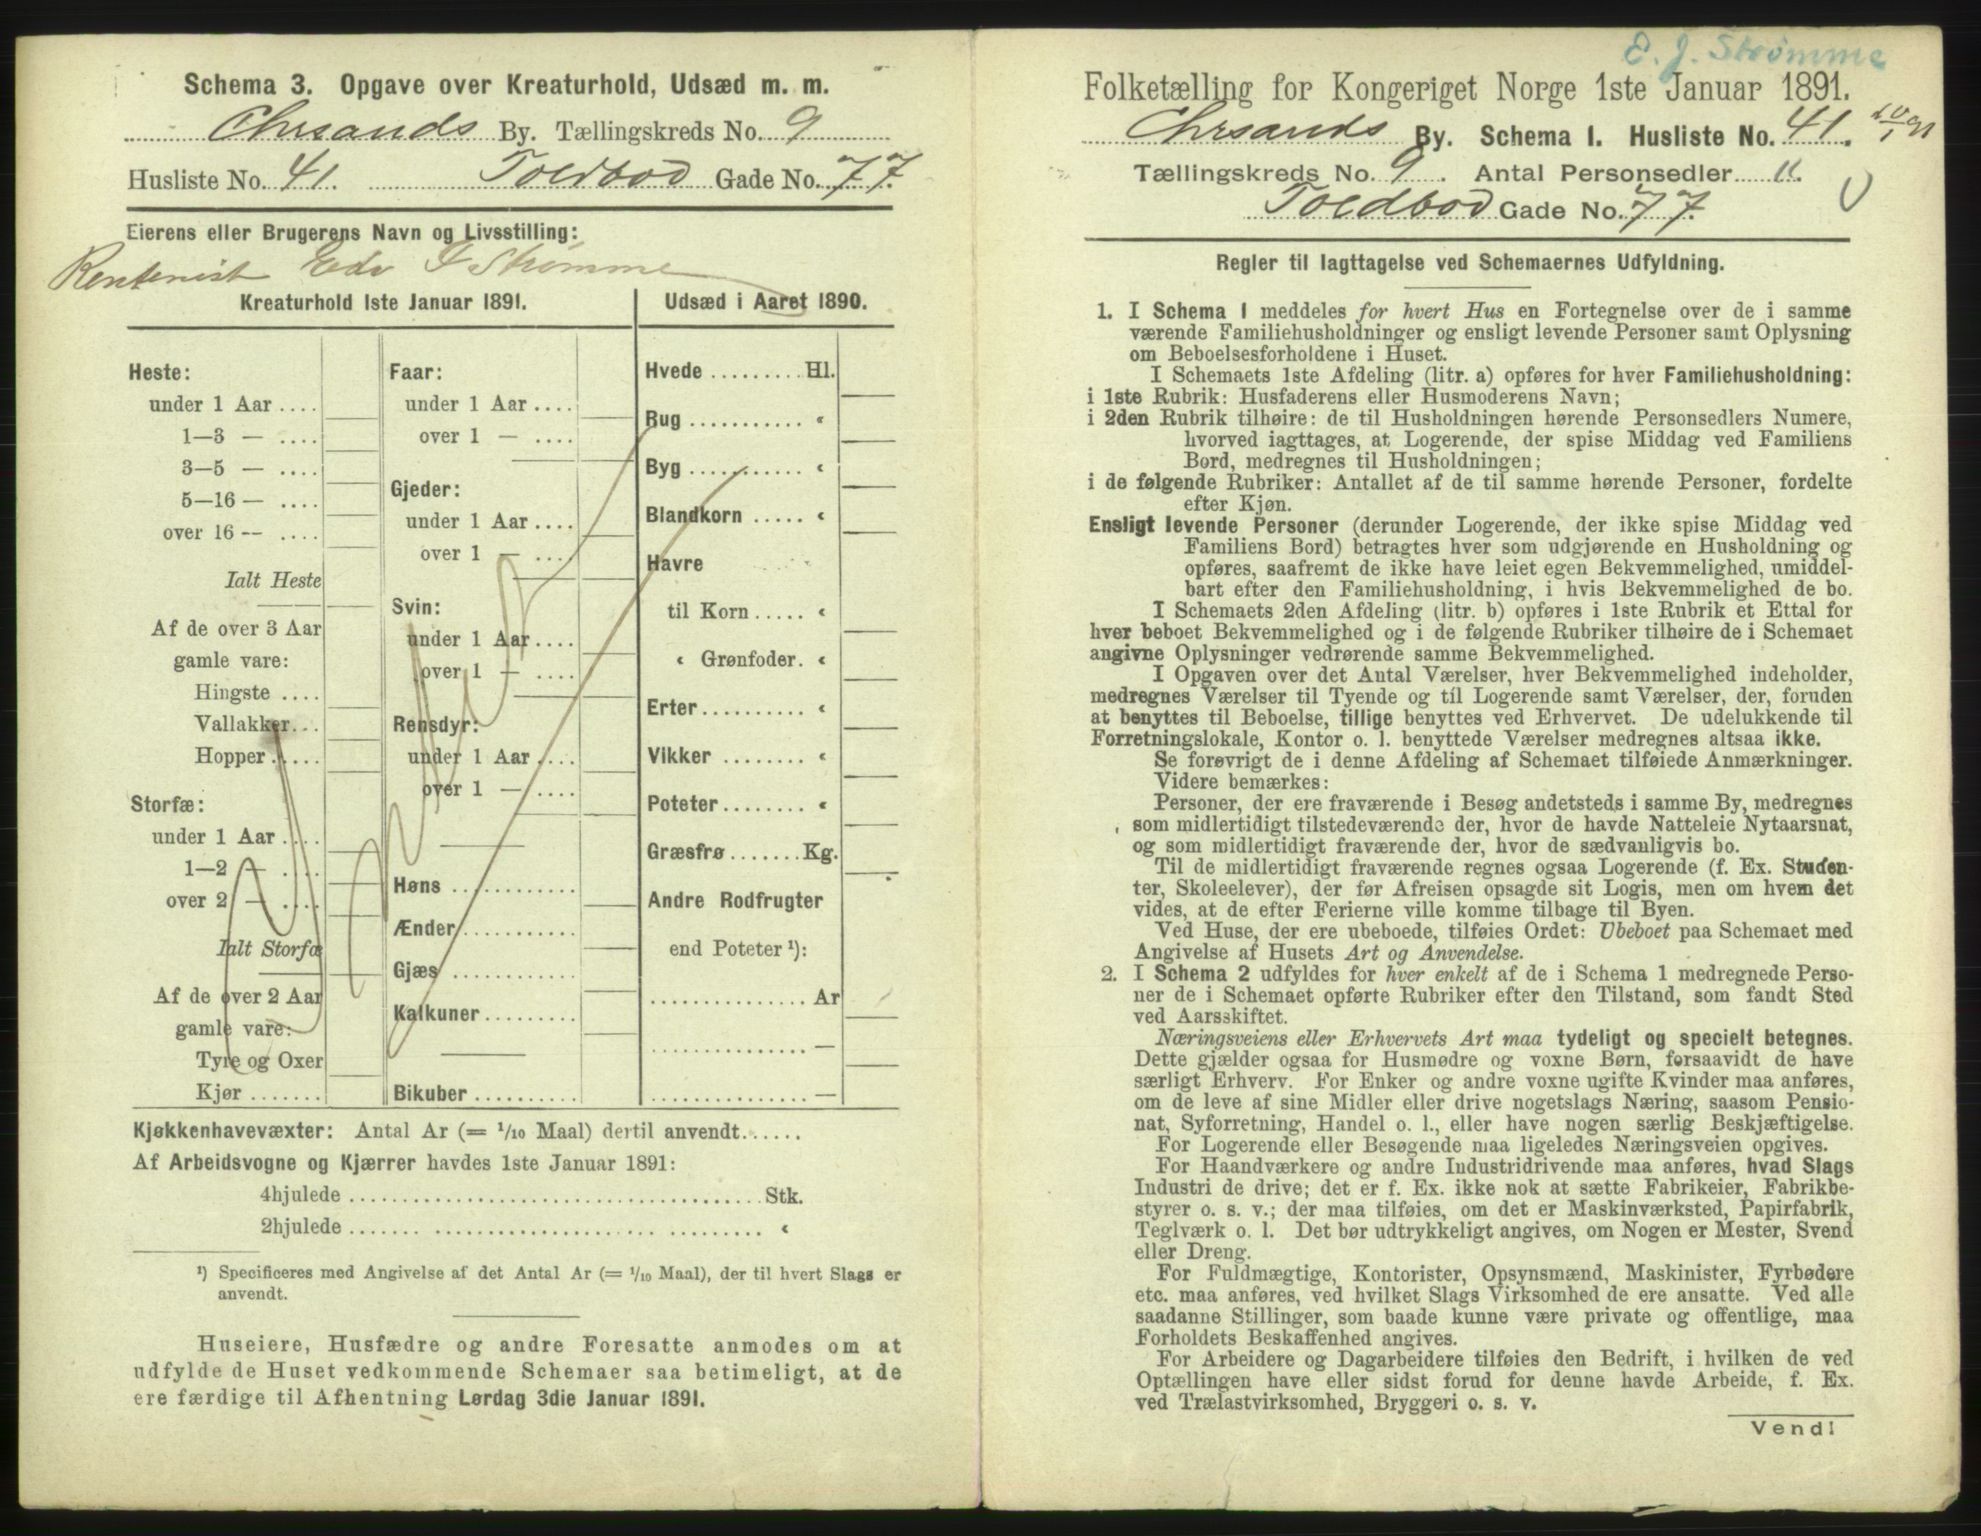 Schema 3. Opgave over Kreaturhold, Udsæd m. m.
Chrsands By. Tællingskreds No. 9
Husliste No. 41. Toldbod Gade No. 77.
Eierens eller Brugerens Navn og Livsstilling:
Rentenist Edv J Strømme
Kreaturhold 1ste Januar 1891.
Heste:
under 1 Aar ....
1—3 — ....
3—5 — ....
5—16 — ....
over 16 — ....
Ialt Heste
Af de over 3 Aar
gamle vare:
Hingste ....
Vallakker...
Hopper.....
Storfæ:
under 1 Aar ....
1—2 — ....
over 2 — ....
Ialt Storfæ
Af de over 2 Aar
gamle vare:
Tyre og Oxer
Kjør .......
Faar:
under 1 Aar ....
over 1 — ....
Gjeder:
under 1 Aar ....
over 1 — ....
Svin:
under 1 Aar ....
over 1 — ....
Rensdyr:
under 1 Aar ....
over 1 — ....
Høns ...........
Ænder...........
Gjæs ...........
Kalkuner........
Bikuber .........
Udsæd i Aaret 1890.
Hvede ......... Hl.
Rug ........... «
Byg ........... «
Blandkorn ..... «
Havre
til Korn ..... «
« Grønfoder. «
Erter.......... «
Vikker ........ «
Poteter ........ «
Græsfrø ....... Kg.
Andre Rodfrugter
end Poteter ¹):
............... Ar
............... —
............... —
Kjøkkenhavevæxter: Antal Ar (= 1/10 Maal) dertil anvendt......
Af Arbeidsvogne og Kjærrer havdes 1ste Januar 1891:
4hjulede ........................................ Stk.
2hjulede ........................................ «
¹) Specificeres med Angivelse af det Antal Ar (= 1/10 Maal), der til hvert Slags er
anvendt.
Huseiere, Husfædre og andre Foresatte anmodes om at
udfylde de Huset vedkommende Schemaer saa betimeligt, at de
ere færdige til Afhentning Lørdag 3die Januar 1891.
E. J. Strømme
Folketælling for Kongeriget Norge 1ste Januar 1891.
Chrsands By. Schema I. Husliste No. 41.
Tællingskreds No. 9. Antal Personsedler 11.
Toldbod Gade No. 77.
Regler til Iagttagelse ved Schemaernes Udfyldning.
1. I Schema 1 meddeles for hvert Hus en Fortegnelse over de i samme
værende Familiehusholdninger og ensligt levende Personer samt Oplysning
om Beboelsesforholdene i Huset.
I Schemaets 1ste Afdeling (litr. a) opføres for hver Familiehusholdning:
i 1ste Rubrik: Husfaderens eller Husmoderens Navn;
i 2den Rubrik tilhøire: de til Husholdningen hørende Personsedlers Numere,
hvorved iagttages, at Logerende, der spise Middag ved Familiens
Bord, medregnes til Husholdningen;
i de følgende Rubriker: Antallet af de til samme hørende Personer, fordelte
efter Kjøn.
Ensligt levende Personer (derunder Logerende, der ikke spise Middag ved
Familiens Bord) betragtes hver som udgjørende en Husholdning og
opføres, saafremt de ikke have leiet egen Bekvemmelighed, umiddel-
bart efter den Familiehusholdning, i hvis Bekvemmelighed de bo.
I Schemaets 2den Afdeling (litr. b) opføres i 1ste Rubrik et Ettal for
hver beboet Bekvemmelighed og i de følgende Rubriker tilhøire de i Schemaet
angivne Oplysninger vedrørende samme Bekvemmelighed.
I Opgaven over det Antal Værelser, hver Bekvemmelighed indeholder,
medregnes Værelser til Tyende og til Logerende samt Værelser, der, foruden
at benyttes til Beboelse, tillige benyttes ved Erhvervet. De udelukkende til
Forretningslokale, Kontor o. l. benyttede Værelser medregnes altsaa ikke.
Se forøvrigt de i denne Afdeling af Schemaet tilføiede Anmærkninger.
Videre bemærkes:
Personer, der ere fraværende i Besøg andetsteds i samme By, medregnes
som midlertidigt tilstedeværende der, hvor de havde Natteleie Nytaarsnat,
og som midlertidigt fraværende der, hvor de sædvanligvis bo.
Til de midlertidigt fraværende regnes ogsaa Logerende (f. Ex. Studen-
ter, Skoleelever), der før Afreisen opsagde sit Logis, men om hvem det
vides, at de efter Ferierne ville komme tilbage til Byen.
Ved Huse, der ere ubeboede, tilføies Ordet: Ubeboet paa Schemaet med
Angivelse af Husets Art og Anvendelse.
2. I Schema 2 udfyldes for hver enkelt af de i Schema 1 medregnede Perso-
ner de i Schemaet opførte Rubriker efter den Tilstand, som fandt Sted
ved Aarsskiftet.
Næringsveiens eller Erhvervets Art maa tydeligt og specielt betegnes.
Dette gjælder ogsaa for Husmødre og voxne Børn, forsaavidt de have
særligt Erhverv. For Enker og andre voxne ugifte Kvinder maa anføres,
om de leve af sine Midler eller drive nogetslags Næring, saasom Pensio-
nat, Syforretning, Handel o. l., eller have nogen særlig Beskjæftigelse.
For Logerende eller Besøgende maa ligeledes Næringsveien opgives.
For Haandværkere og andre Industridrivende maa anføres, hvad Slags
Industri de drive; det er f. Ex. ikke nok at sætte Fabrikeier, Fabrikbe-
styrer o. s. v.; der maa tilføies, om det er Maskinværksted, Papirfabrik,
Teglværk o. l. Det bør udtrykkeligt angives, om Nogen er Mester, Svend
eller Dreng.
For Fuldmægtige, Kontorister, Opsynsmænd, Maskinister, Fyrbødere
etc. maa anføres, ved hvilket Slags Virksomhed de ere ansatte. Ved alle
saadanne Stillinger, som baade kunne være private og offentlige, maa
Forholdets Beskaffenhed angives.
For Arbeidere og Dagarbeidere tilføies den Bedrift, i hvilken de ved
Optællingen have eller sidst forud for denne havde Arbeide, f. Ex.
ved Trælastvirksomhed, Bryggeri o. s. v.
Vend!